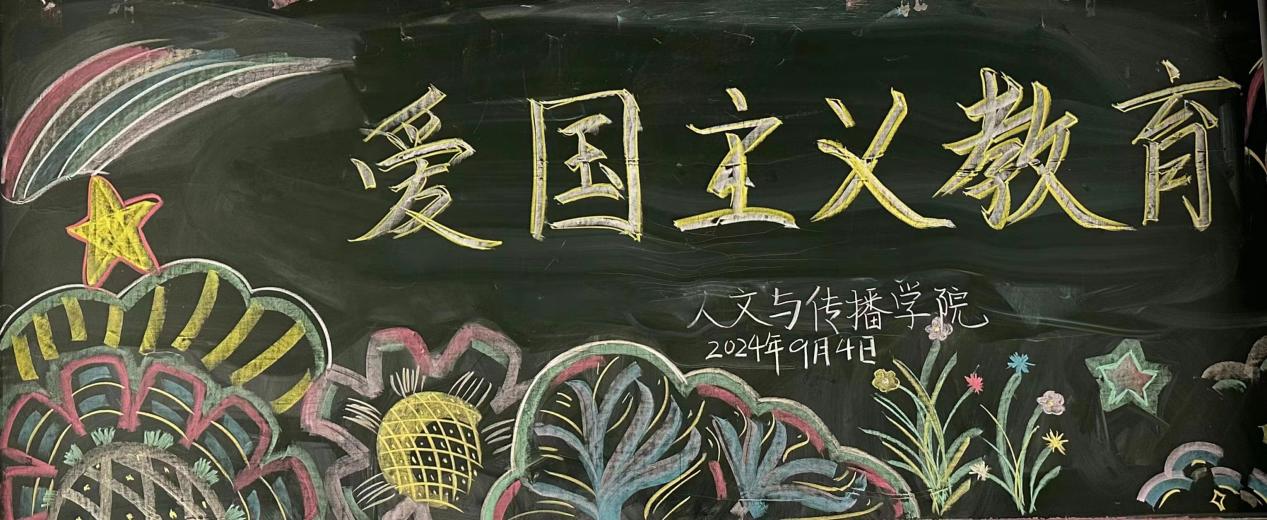 爱国主义教育
人文与传播学院
2024年9月4日